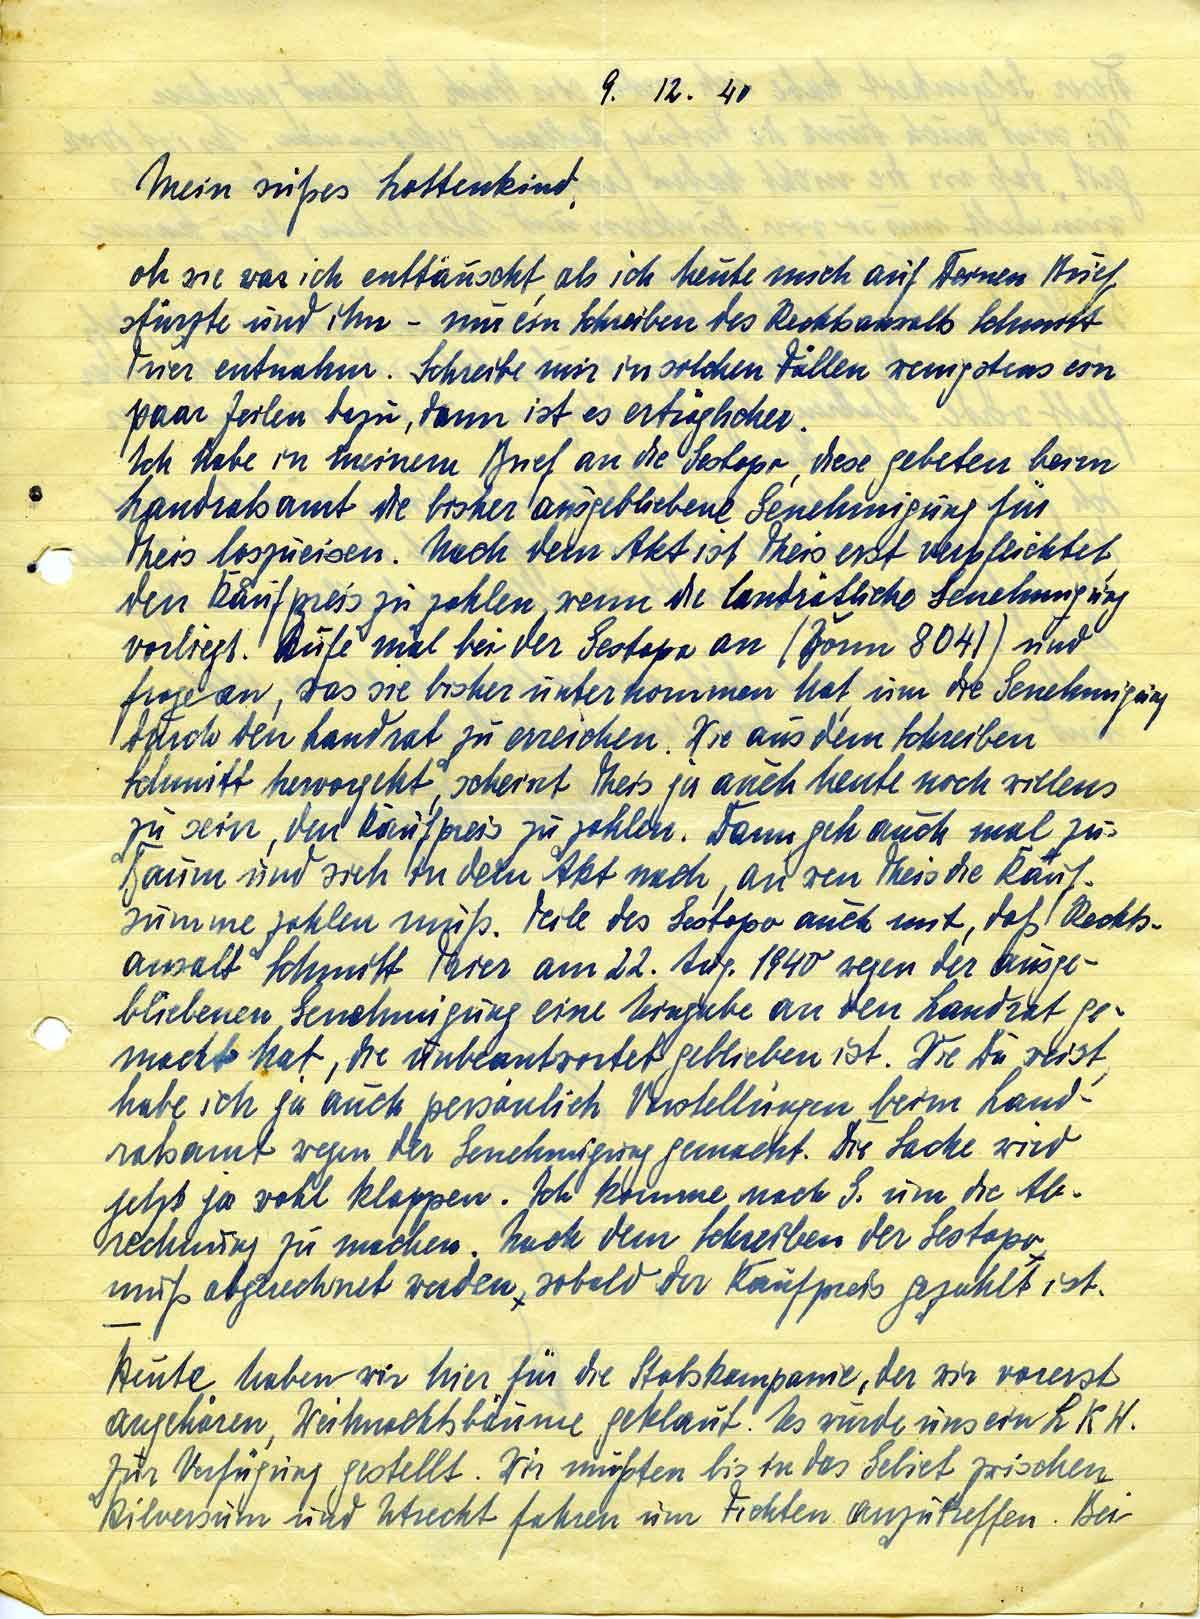 9. 12. 40
Mein süßes Lottenkind,
oh wie war ich enttäuscht, als ich heute mich auf Deinen Brief
stürzte und ihm - nur ein Schreiben des Rechtsanwalts Schmitt
Trier entnahm. Schreibe mir in solchen Fällen wenigstens ein
paar Zeilen dazu, dann ist es erträglicher.
Ich habe in meinem Brief an die Gestapo, diese gebeten beim
Landratsamt die bisher ausgebliebene Genehmigung für
Theis loszueisen. Nach dem Akt ist Theis erst verpflichtet,
den Kaufpreis zu zahlen, wenn die landrätliche Genehmigung
vorliegt. Rufe mal bei der Gestapo an (8041) und
frage an, was sie bisher unternommen hat, um die Genehmigung
durch den Landrat zu erreichen. Wie aus dem Schreiben
Schmitt hervorgeht, scheint Theis ja auch heute noch willens
zu sein, den Kaufpreis zu zahlen. Dann geh auch mal zu
Baum und sieh in dem Akt nach, an wen Theis die Kauf-
summe zahlen muß. Teile der Gestapo auch mit, daß Rechts-
anwalt Schmitt Trier am 22. Aug. 1940 wegen der ausge-
bliebenen Genehmigung eine Eingabe an den Landrat ge-
macht hat, die unbeantwortet geblieben ist. Wie Du weist,
habe ich ja auch persönlich Vorstellungen beim Land-
ratsamt wegen der Genehmigung gemacht. Die Sache wird
jetzt ja wohl klappen. Ich komme nach S. um die Ab-
rechnung zu machen. Nach dem Schreiben der Gestapo
muß abgerechnet werden, sobald der Kaufpreis gezahlt ist.
Heute haben wir hier für die Stabskompanie, der wir vorerst
angehören, Weihnachtsbäume geklaut. Es wurde uns ein L K W.
zur Verfügung gestellt. Wir mußten bis in das Gebiet zwischen
Hilversum und Utrecht fahren um Fichten anzutreffen. Bei